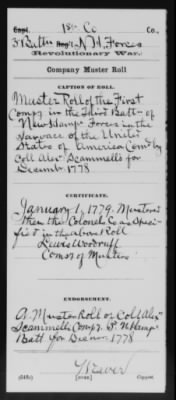 Capt. 1st Co Co.,
3 Battn Regt. N.H. Forces
Revolutionary War.
Company Muster Roll
CAPTION OF ROLL.
Muster Roll of the First
Compy in the Third Batt- of
New Hamps Forces in the
Service of the United
States of America Comd by
Coll Alexr Scammells for
Decembr 1778
CERTIFICATE.
January 1, 1779. Mustered
then the Colonels Co as Speci-
fied in the above Roll
Lewis Woodruff
Comsy of Musters
ENDORSEMENT.
A Muster Roll of Coll Alexr
Scammells Compy N Hamp
Batt for Decmr 1778
(545c) Copyist.